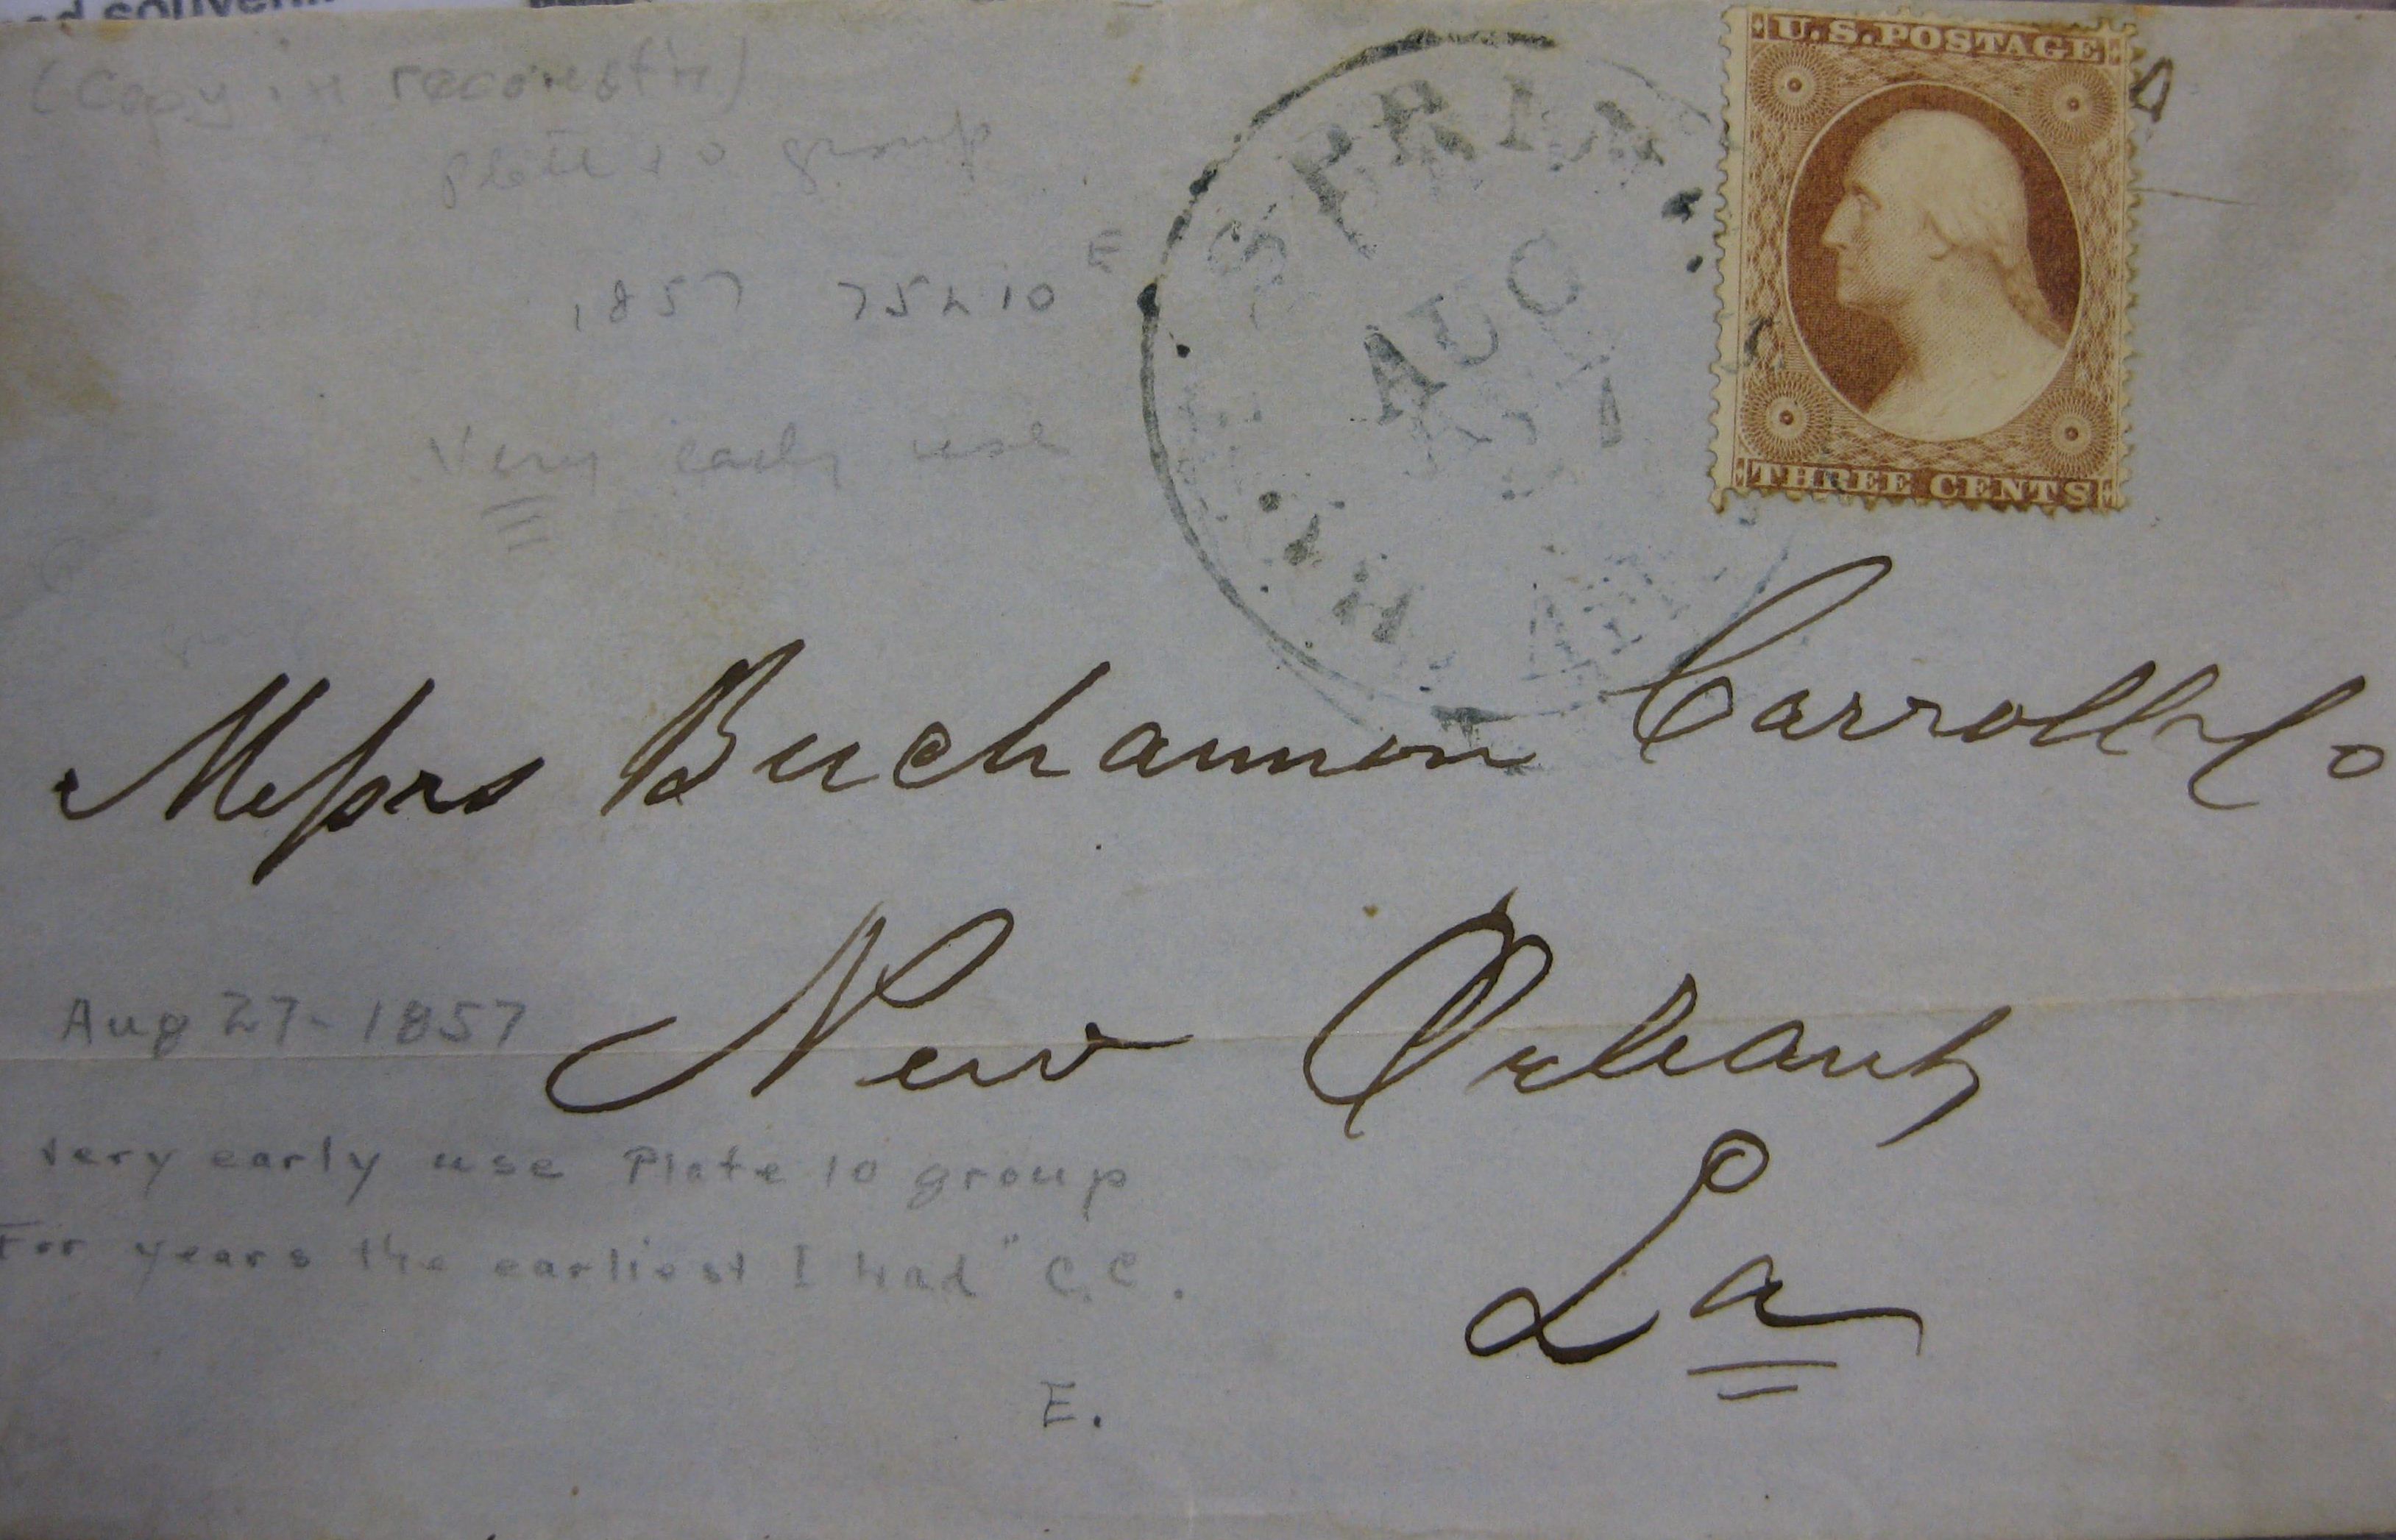 (Copy in
plate 10 group
1857 75L10 E
Very early use
SPRIN
AUG
U.S.POSTAGE
THREE CENTS
Messrs Buchannon Carroll & Co
New Orleans
La
Aug 27-1857
Very early use Plate 10 group
For years the earliest I had" C.C.
E.